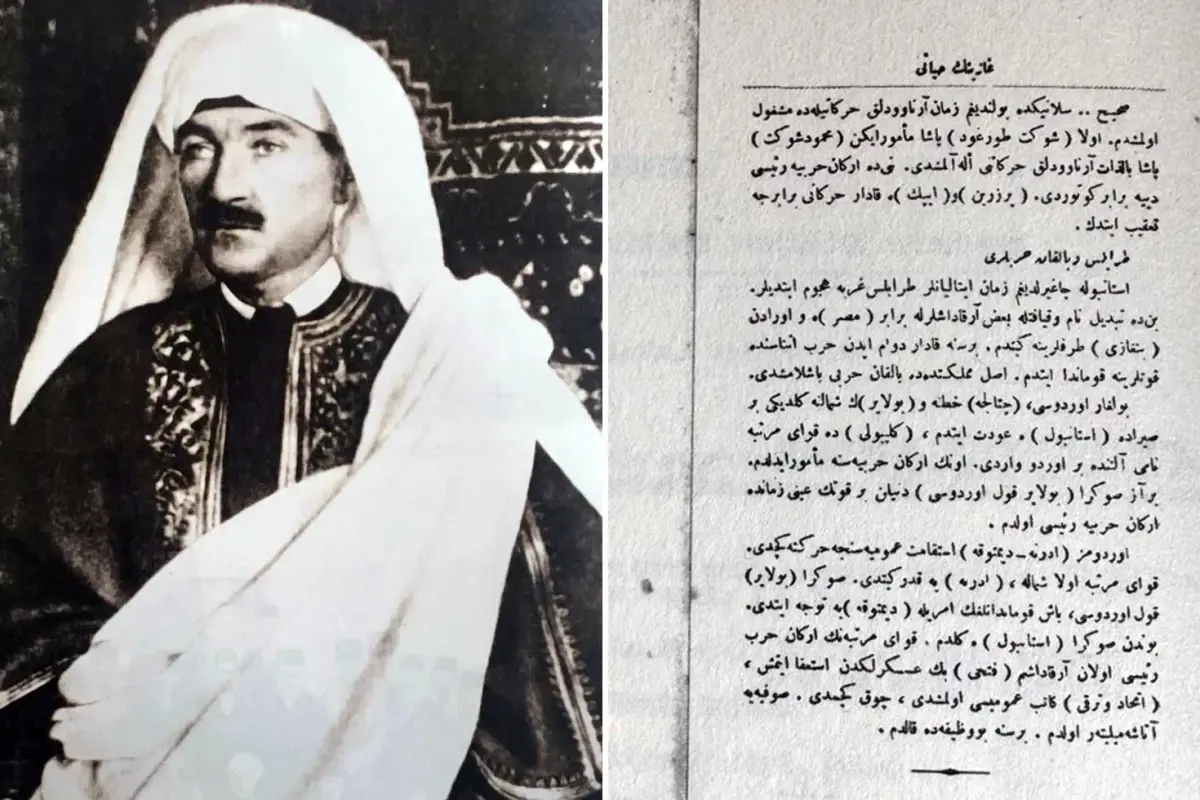 غازينك حياتی
صحيح .. سلانيكده بولنديغم زمان آرناوودلق حركاتيله‌ده مشغول
اولمشدم. اولا ( شوكت طورغود ) پاشا مأمورايكن ( محمودشوكت )
پاشا بالذات آرناوودلق حركاتی أله آلمشدی. بی‌ده اركان حربيه رئيسی
دييه برابر كوتوردی. ( پرزرين ) و( ايپك )ه قادار حركاتی برابرجه
تعقيب ايتدك .
طرابلس وبالقان حربلری
استانبوله جاغيرلديغم زمان ايتاليانلر طرابلس غربه هجوم ايتديلر.
بن‌ده تبديل نام وقيافتله بعض آرقاداشلرله برابر ( مصر )ه و اورادن
( بنغازی ) طرفلرينه كيتدم. برسنه قادار دوام ايدن حرب اثناسنده
قوتلرينه قوماندا ايتدم. اصل مملكتده‌ده بالقان حربی باشلامشدی.
بولغار اوردوسی، (چتالجه) خطنه و (بولاير)ك شمالنه كلديكی بر
صيراده ( استانبول )ه عودت ايتدم ، ( كليبولی ) ده قوای مرتبه
نامی آلتنده بر اوردو واردی. اونك اركان حربيه‌سنه مأمورايدلدم.
برآز صوكرا ( بولاير قول اوردوسی ) دنيلن بر قوتك عينی زمانده
اركان حربيه رئيسی اولدم .
اوردومز (ادرنه ـ ديمتوقه ) استقامت عموميه‌سنجه حركته كچدی.
قوای مرتبه اولا شماله ، ( ادرنه ) يه قدركيتدی. صوكرا (بولاير)
قول اوردوسی، باش قوماندانلغك امريله ( ديمتوقه )يه توجه ايتدی.
بوندن صوكرا ( استانبول )ه كلدم . قوای مرتبه‌نك اركان حرب
رئيسی اولان آرقاداشم ( فتحی ) بك عسكرلكدن استعفا ايتمش ،
( اتحاد وترقی ) كاتب عموميسی اولمشدی ، چوق كچمدی . صوفيه‌يه
آتاشه‌ميليته‌ر اولدم . برسنه بووظيفه‌ده قالدم .